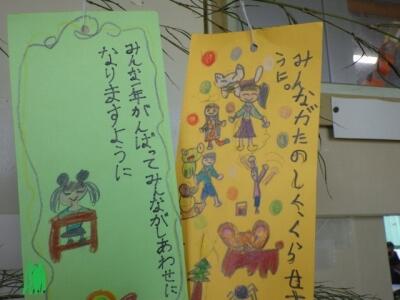 みんな一年がんばってみんながしあわせに
なりますように
みんながたのしくくらせ
うに。